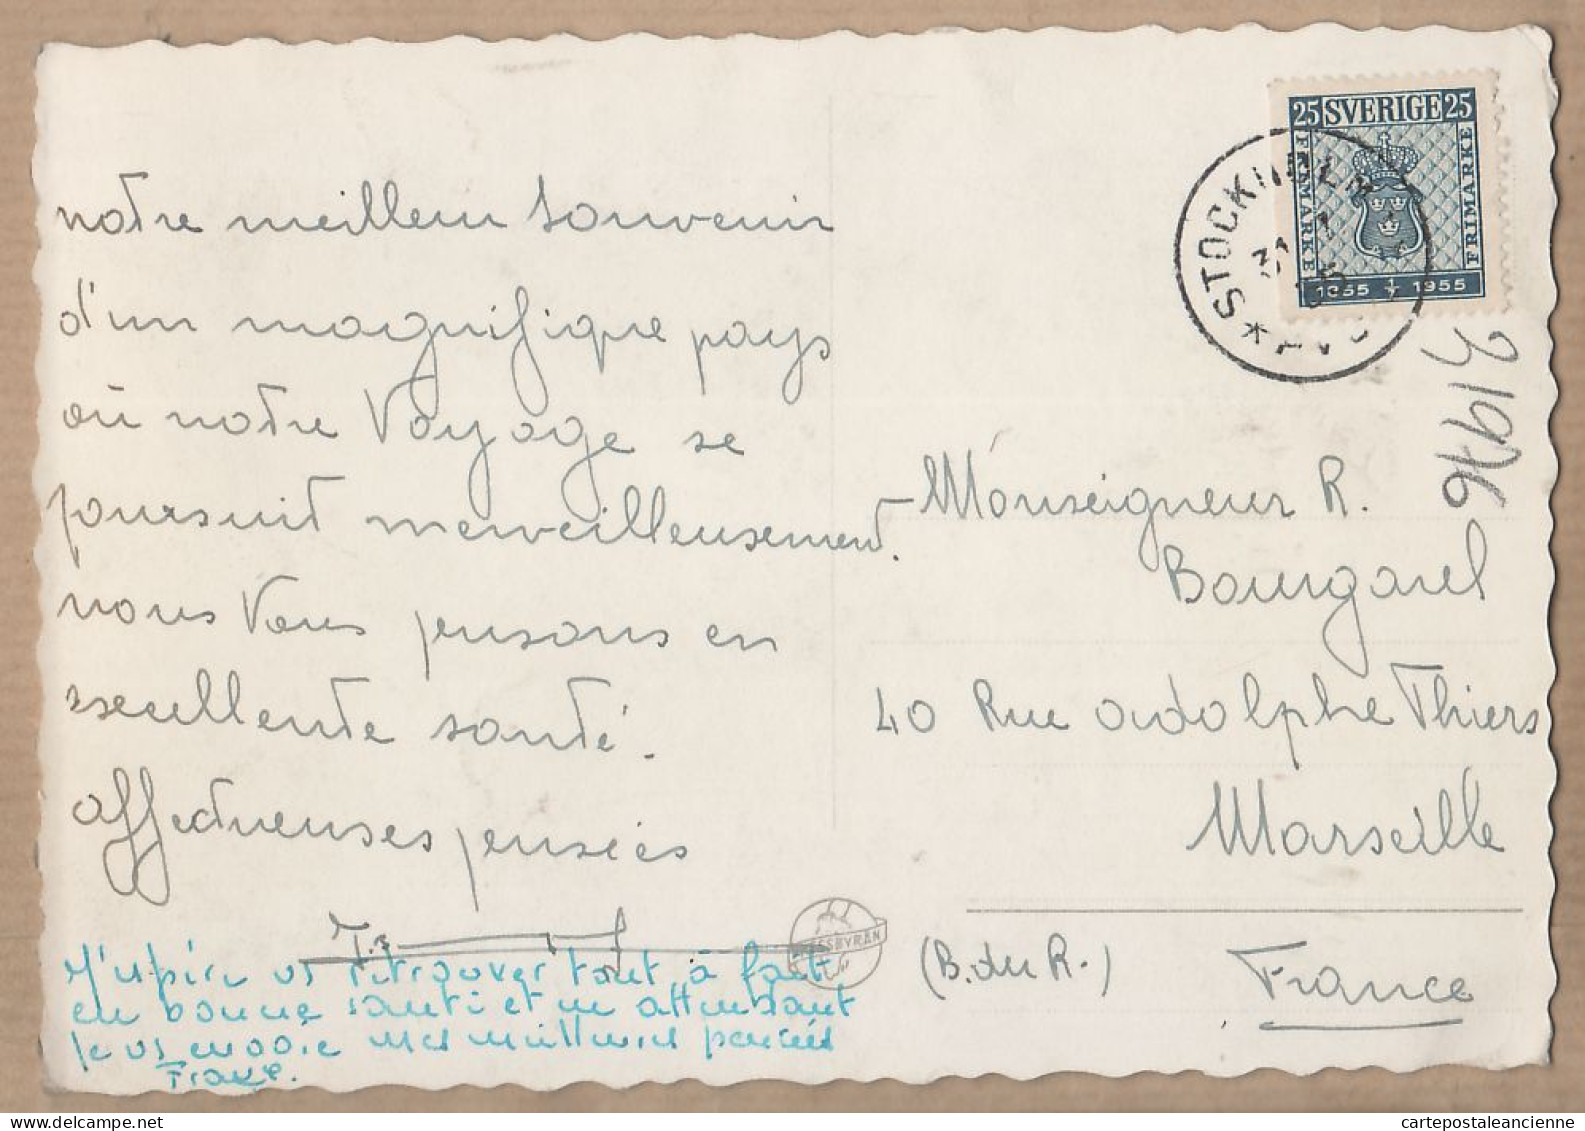 notre meilleur souvenir
d'un magnifique pays
où notre Voyage se
poursuit merveilleusement.
nous Vous pensons en
excellente santé.
affectueuses pensées
J'espère vs retrouver tout à fait
en bonne santé et en attendant
je vs envoie mes meilleures pensées
25 SVERIGE 25
FRIMÄRKE
FRIMÄRKE
1855 1/7 1955
STOCKHOLM
31976
Monseigneur R.
Bourgarel
40 Rue adolphe Thiers
Marseille
(B. du R.)
France
PRESSBYRÅN
cartepostaleancienne.net
cartepostaleancienne